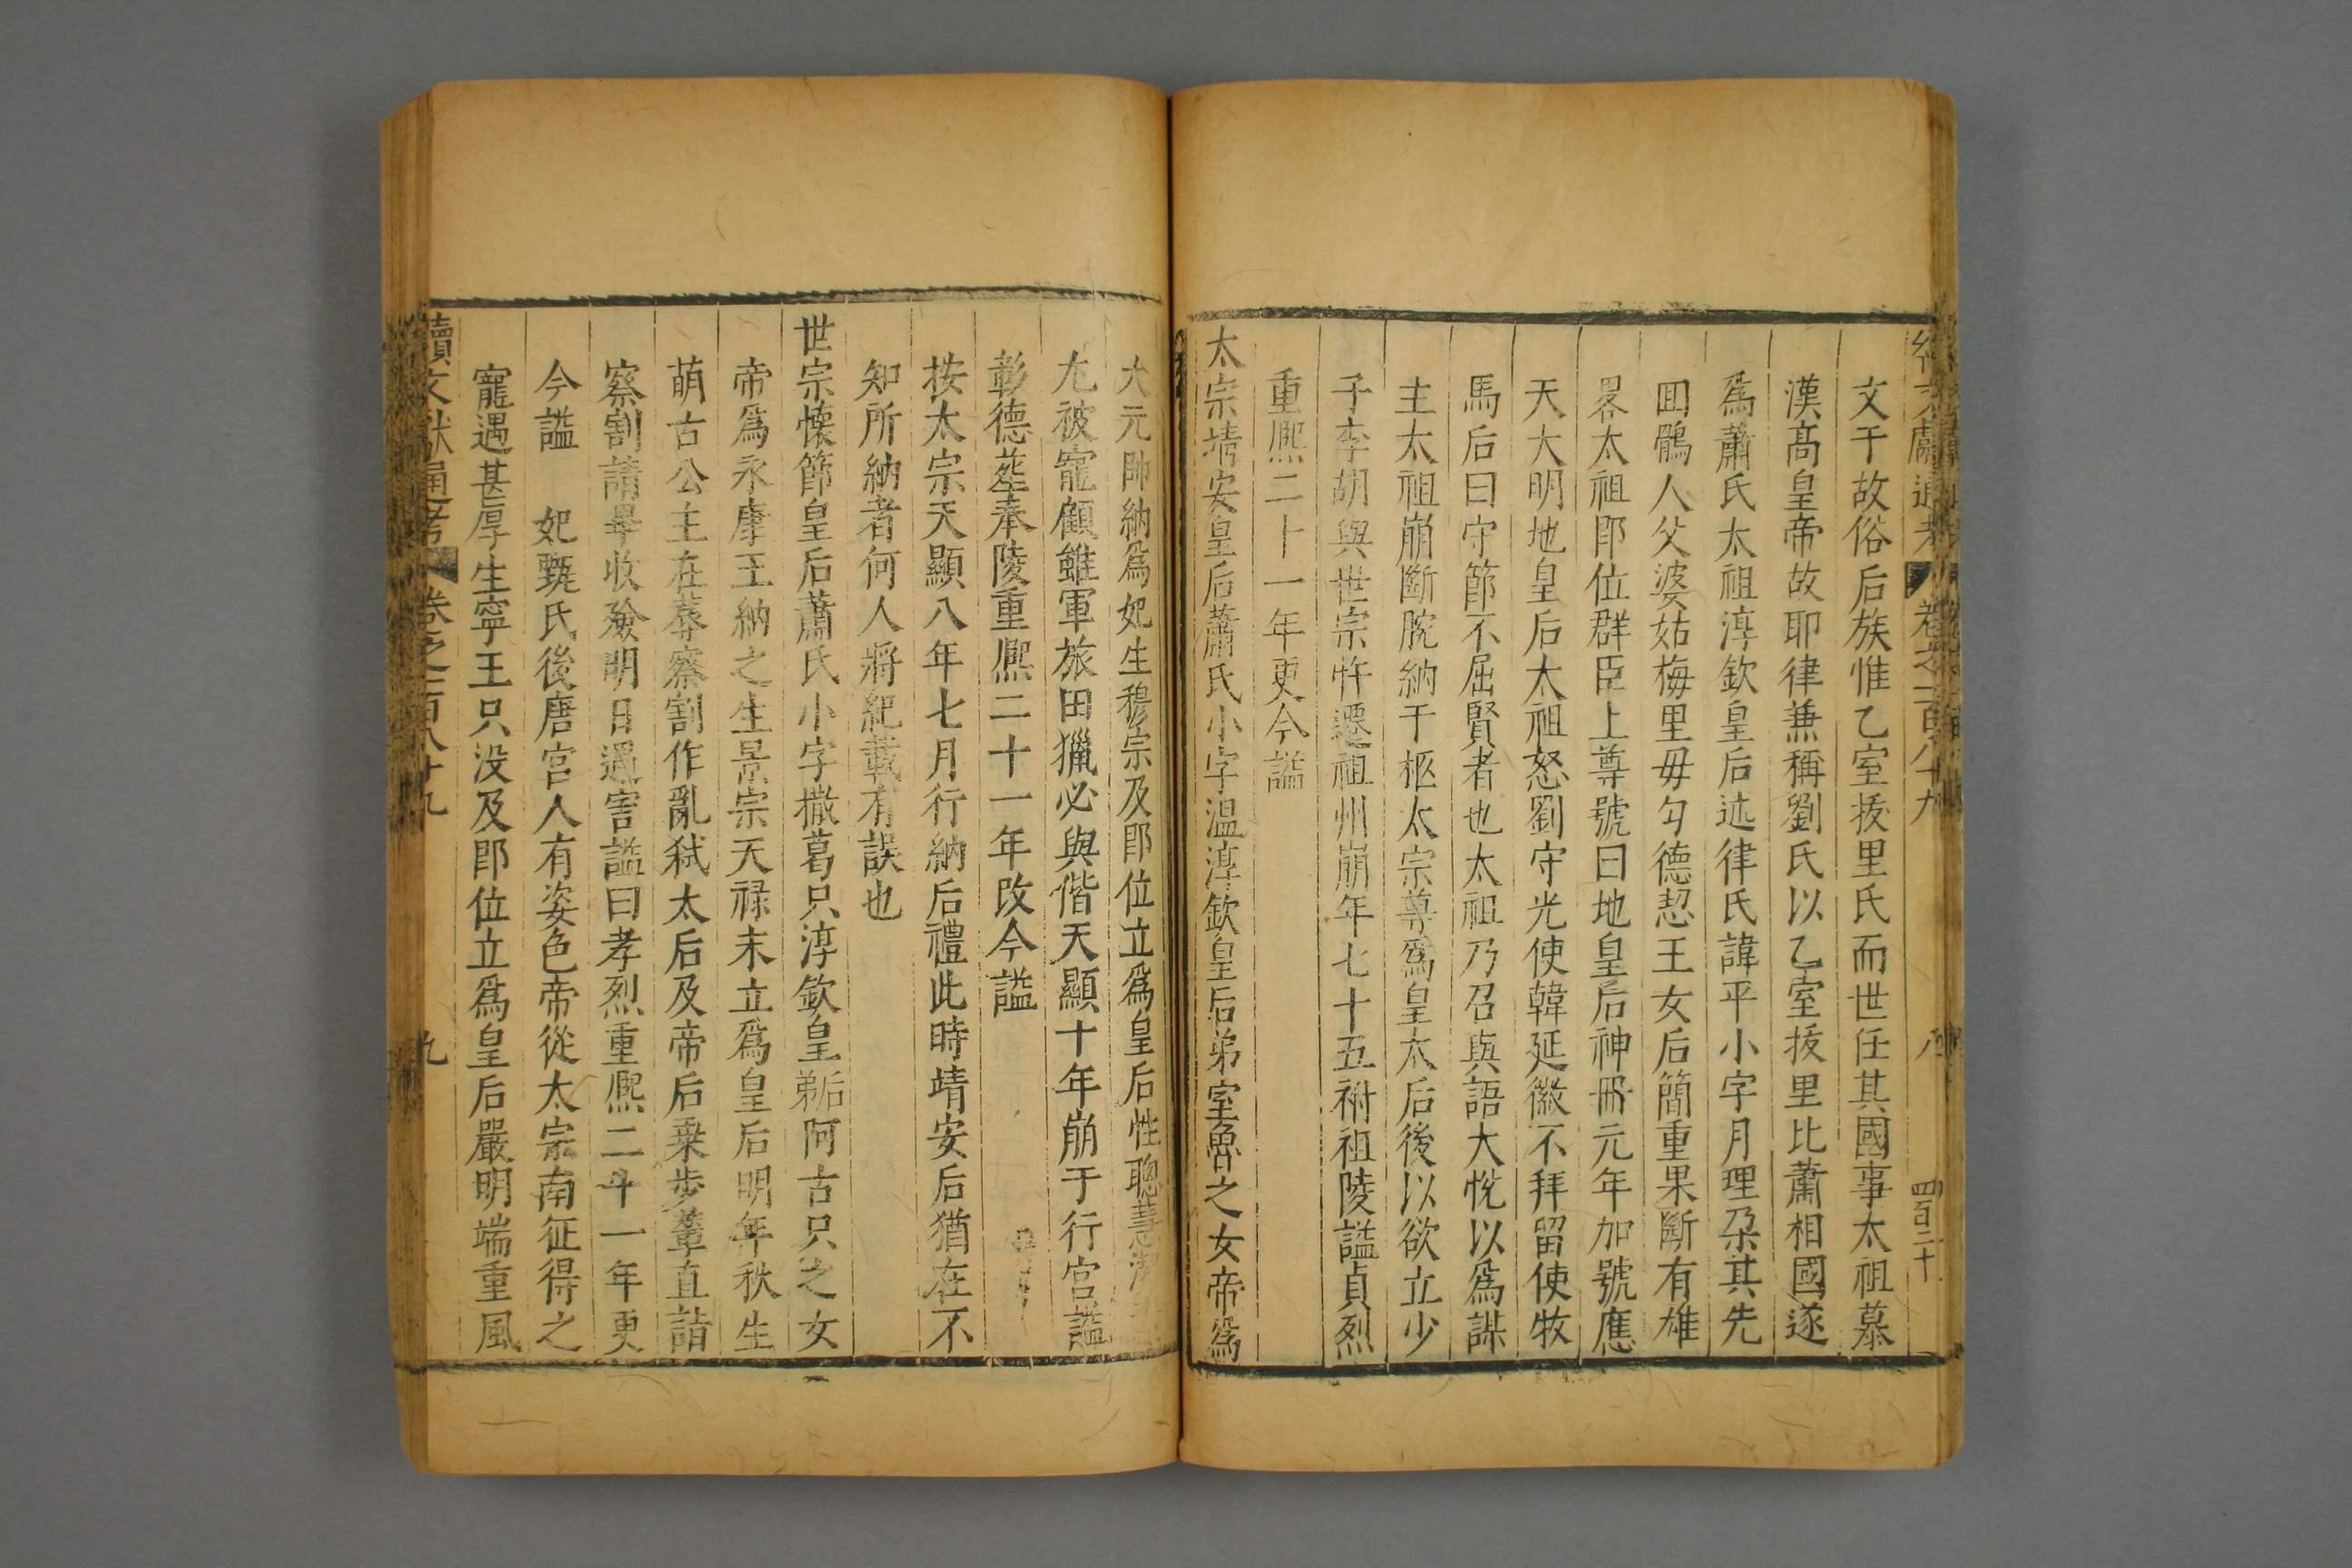 續文獻通考 卷之一百八十九 八 四百二十
文于故俗后族惟乙室拔里氏而世任其國事太祖慕
漢髙皇帝故耶律兼稱劉氏以乙室拔里比蕭相國遂
爲蕭氏太祖淳欽皇后述律氏諱平小字月理朶其先
囬鶻人父婆姑梅里毋匀德恝王女后簡重果斷有雄
畧太祖即位群臣上尊號曰地皇后神冊元年加號應
天大明地皇后太祖怒劉守光使韓延徽不拜留使牧
馬后曰守節不屈賢者也太祖乃召與語大恱以爲謀
主太祖崩斷腕納于柩太宗尊爲皇太后後以欲立少
子李胡與世宗忤遷祖州崩年七十五祔祖陵諡貞烈
重熈二十一年更今諡
太宗靖安皇后蕭氏小字温淳欽皇后弟室魯之女帝爲
大元帥納爲妃生穆宗及即位立爲皇后性聰慧潔
尤被寵顧雖軍旅田獵必與偕天顯十年崩于行宫諡
彰德塟奉陵重熈二十一年改今諡
按太宗天顯八年七月行納后禮此時靖安后猶在不
知所納者何人將紀載有誤也
世宗懐節皇后蕭氏小字撒葛只淳欽皇后弟阿古只之女
帝爲永康王納之生景宗天禄末立爲皇后明年秋生
萌古公主在蓐察割作亂弑太后及帝后乗步輦直詣
察割請畢收殮明日遇害諡曰孝烈重熈二十一年更
今諡 妃甄氏後唐宫人有姿色帝從太宗南征得之
寵遇甚厚生寧王只没及即位立爲皇后嚴明端重風
續文獻通考 卷之一百八十九 九